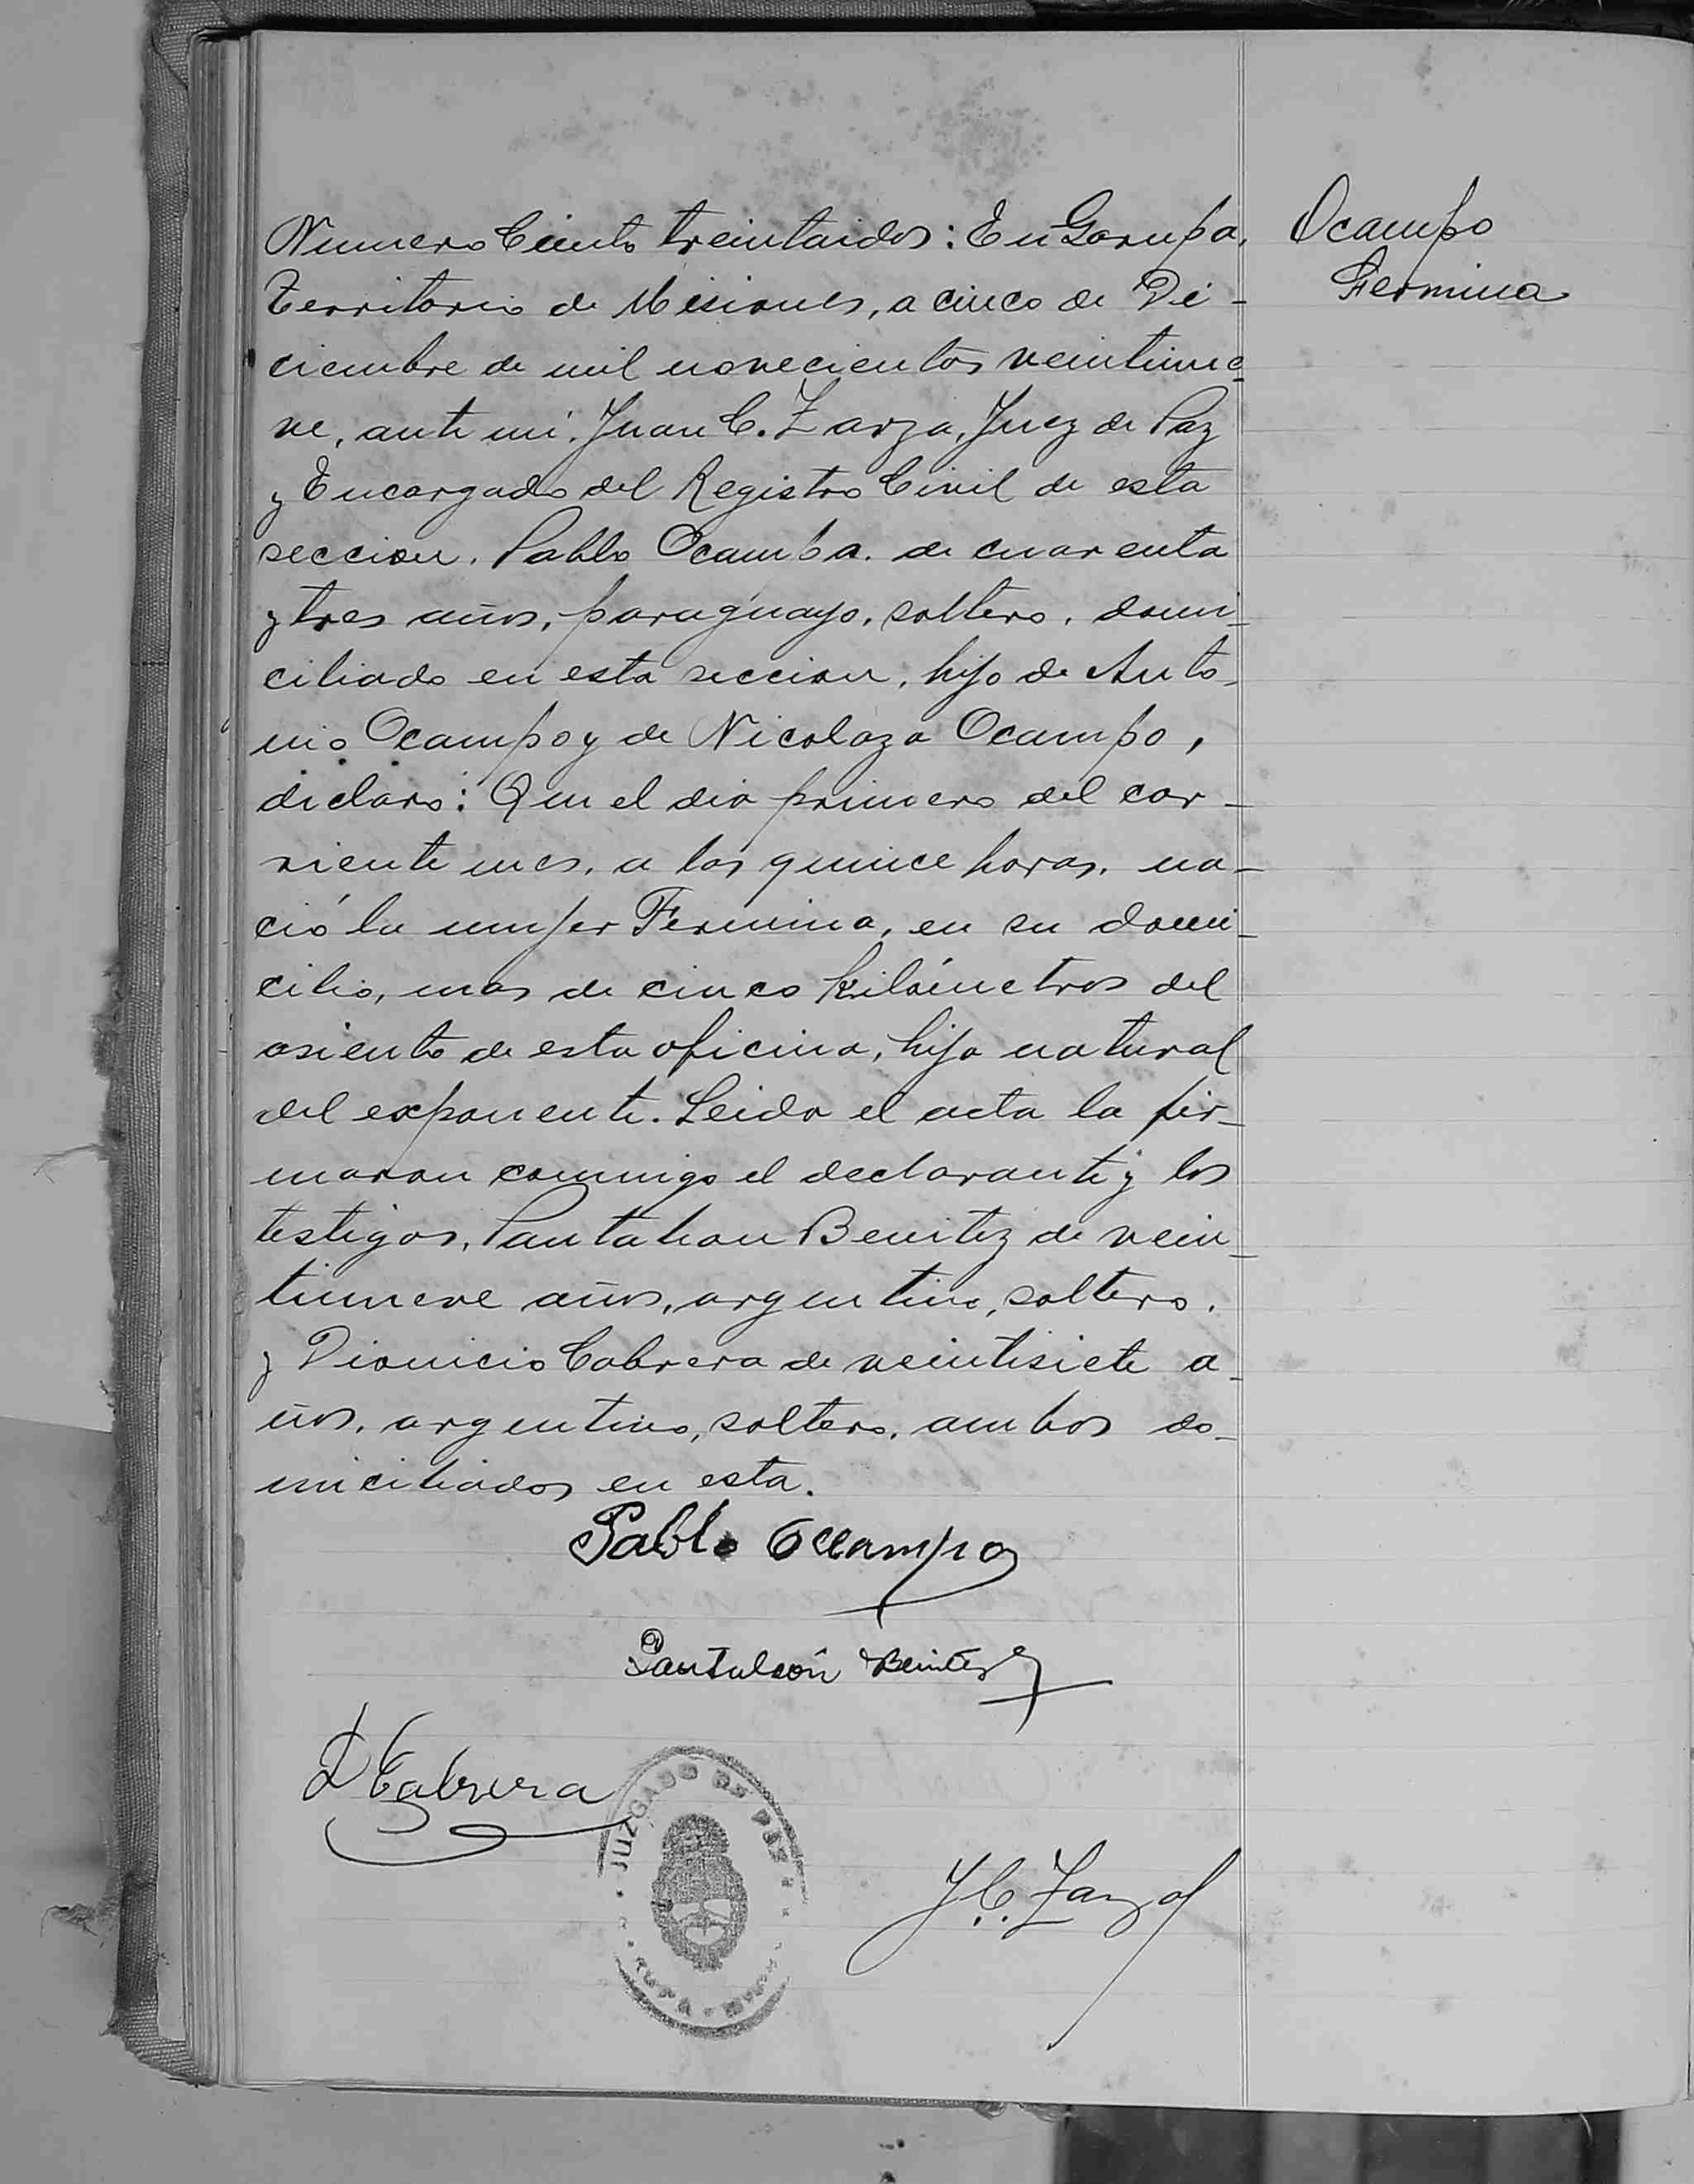 Numero Ciento treintaidos: En Garupa,
Territorio de Misiones, a cinco de Di-
ciembre de mil novecientos veintinue-
ve, ante mi, Juan C. Zarza, Juez de Paz
y Encargado del Registro Civil de esta
seccion, Pablo Ocampo, de cuarenta
y tres años, paraguayo, soltero, domi-
ciliado en esta seccion, hijo de Anto-
nio Ocampo y de Nicolaza Ocampo,
declaro: Que el dia primero del cor-
riente mes, a las quince horas, na-
ció la mujer Fermina, en su domi-
cilio, mas de cinco kilómetros del
asiento de esta oficina, hija natural
del exponente. Leida el acta la fir-
maron conmigo el declarante y los
testigos, Pantaleon Benitez de vein-
tinueve años, argentino, soltero,
y Dionicio Cabrera de veintisiete a-
ños, argentino, soltero, ambos do-
miciliados en esta.
Ocampo
Fermina
Pablo Ocampo
Pantaleón Benitez
D Cabrera
JUZGADO DE PAZ
J. C. Zarza